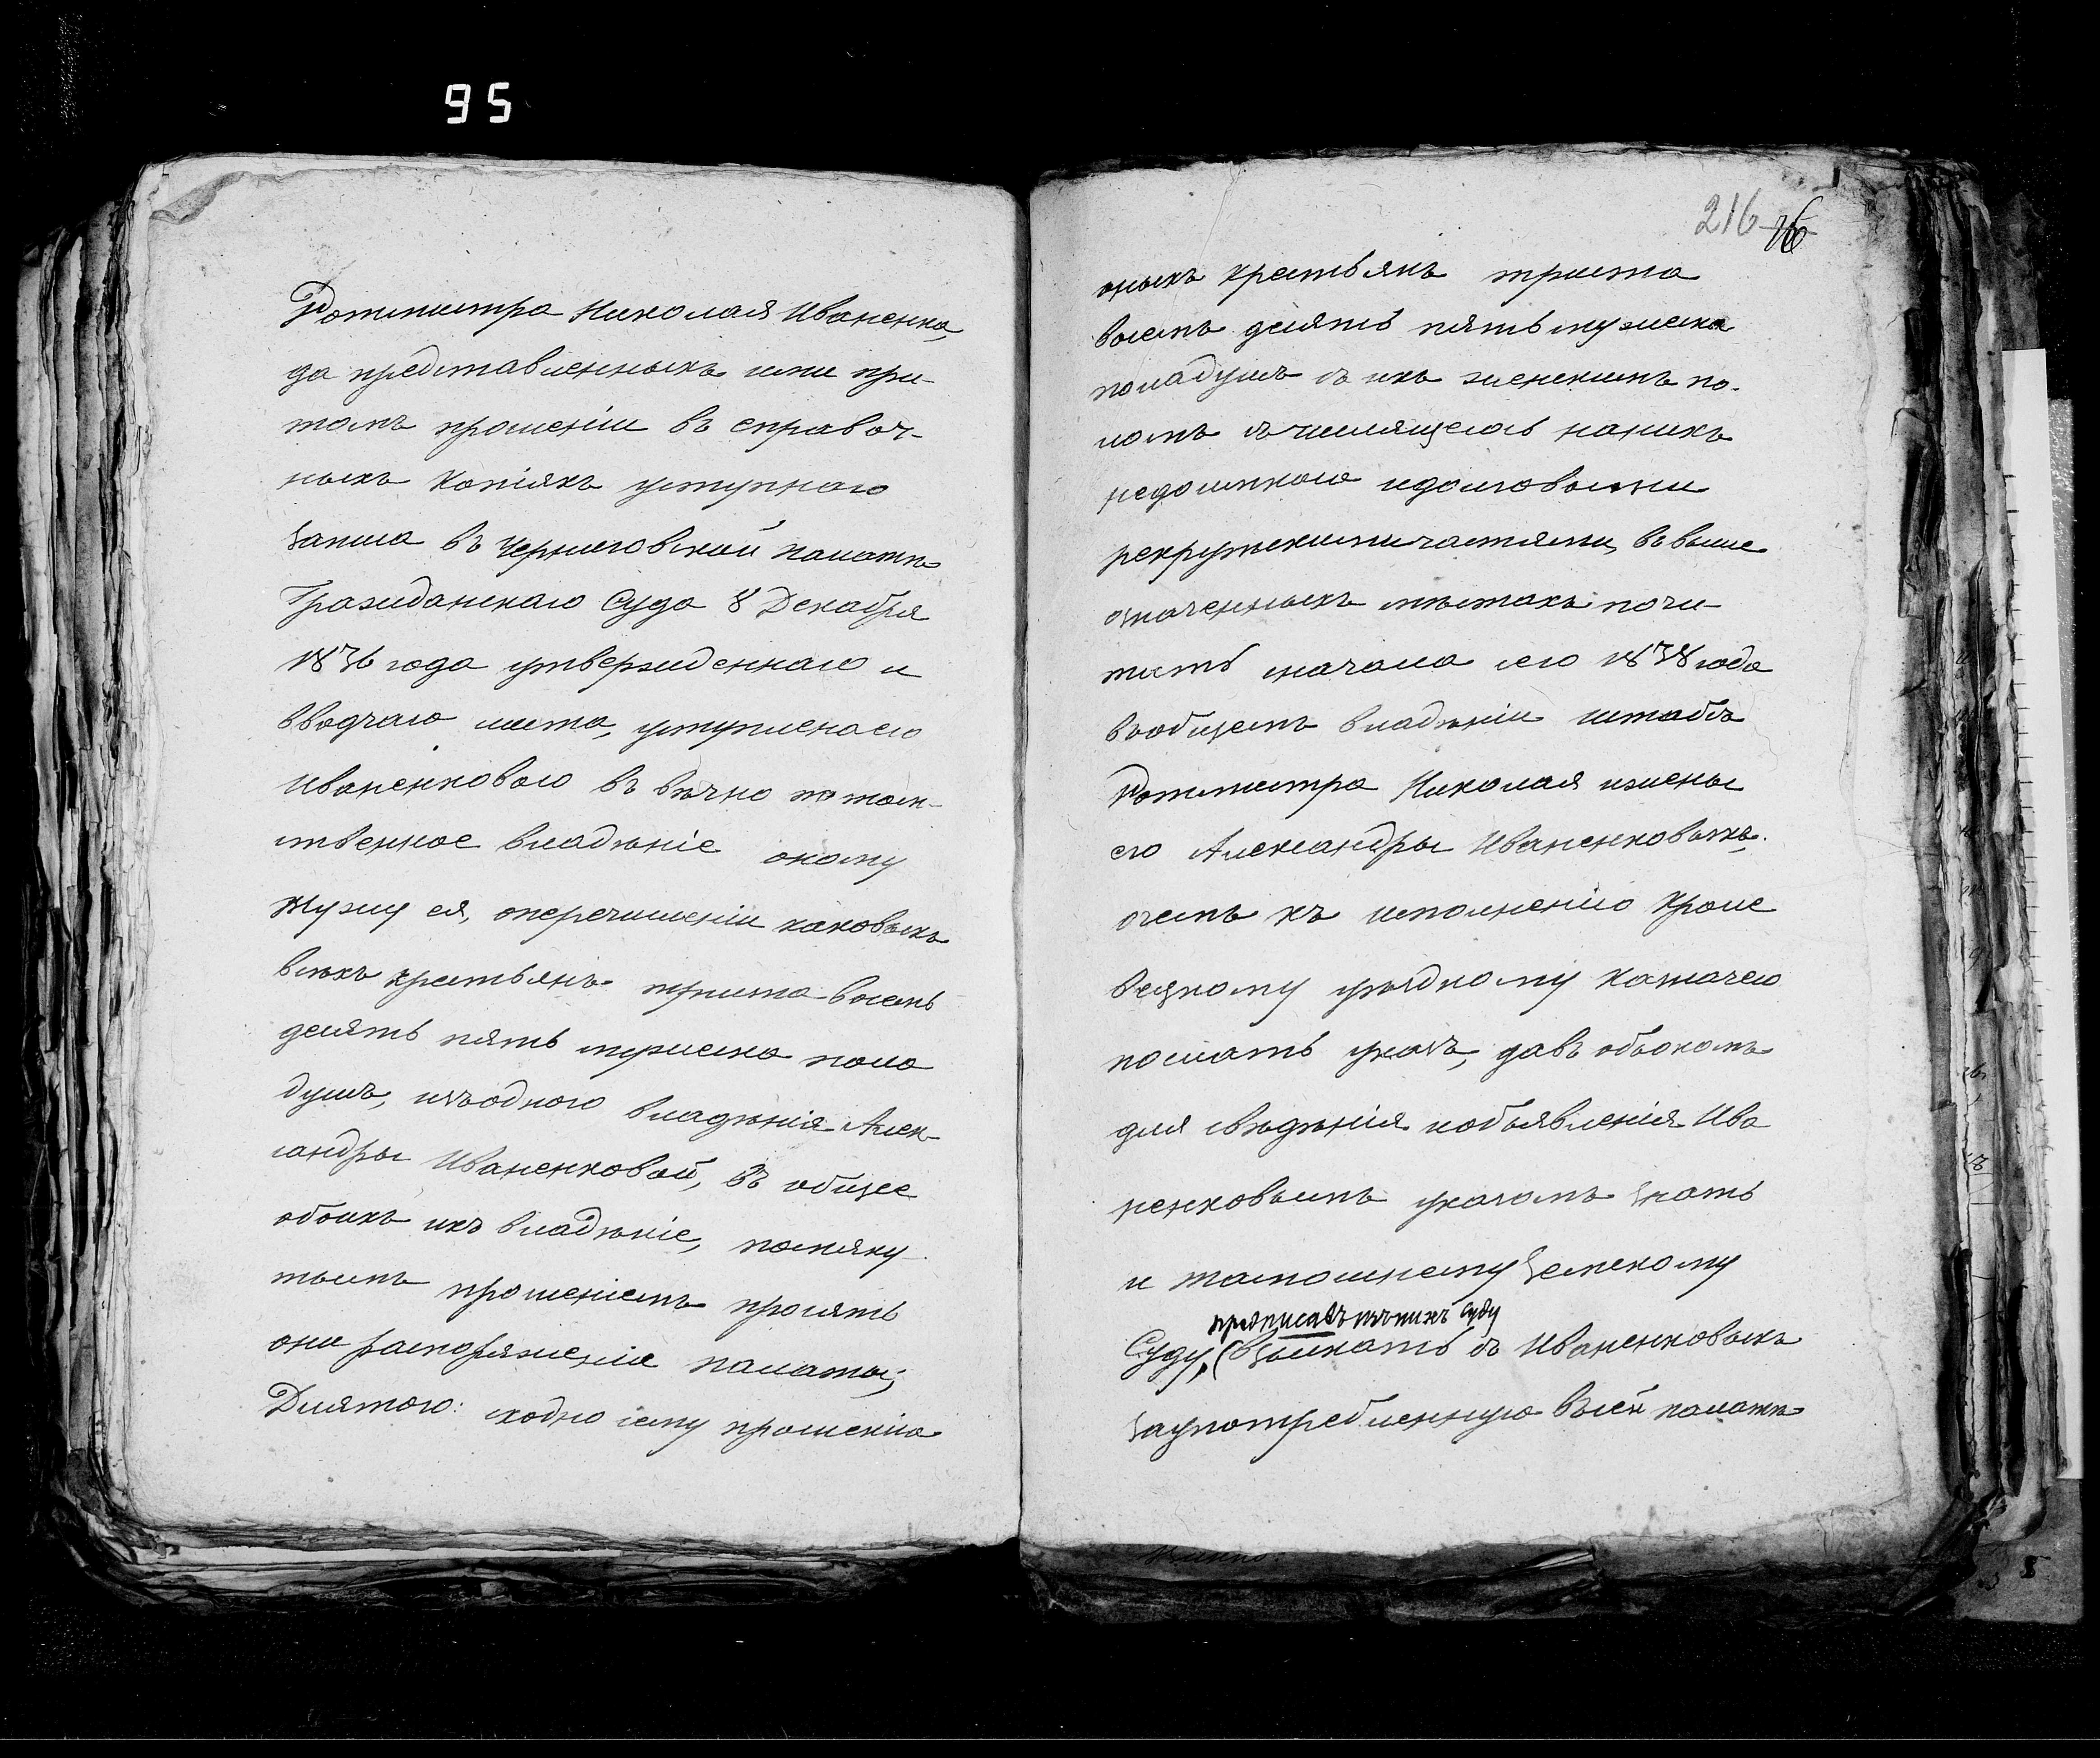 95
Ротмистра Николая Иваненка,
да представленныхъ ими при
томъ прошеніи въ справоч-
ныхъ копіяхъ уступнаго
записа въ Черниговской палатѣ
Гражданскаго Суда 8 Декабря
1836 года утвержденнаго и
вводчаго листа, уступленаго
Иваненковою въ вѣчно потом-
ственное владѣніе оному
мужу ея, оперечисленіи каковыхъ
всѣхъ крестьянъ триста восемь
десятъ пять мужеска пола
душъ, изъодного владѣнія Алек-
сандры Иваненковой, въ общее
обоихъ ихъ владѣніе, помяну-
тымъ прошеніемъ просятъ
они распоряженія палаты;
Длятого: сходно сему прошенію
216 76
оныхъ крестьянъ триста
восемь десятъ пять мужеска
поладушъ съ ихъ женскимъ по-
ломъ съчислящеюсь наныхъ
недоимкою идолговыми
рекрутскимичастями, ввыше
означенныхъ мѣстахъ почи-
тать сначала сего 1838 года
вобщемъ владѣніи штабъ
Ротмистра Николая ижены
его Александры Иваненковыхъ.
очемъ къ исполненію кроле
вецкому уѣздному казначею
послать указъ, давъ объономъ
для свѣдѣнія иобъявленія Ива
ненковымъ указомъ знать
и тамошнему Земскому
предписавъ Суду
Суду, (Взыскать съ Иваненковыхъ
заупотребленную всей палатѣ